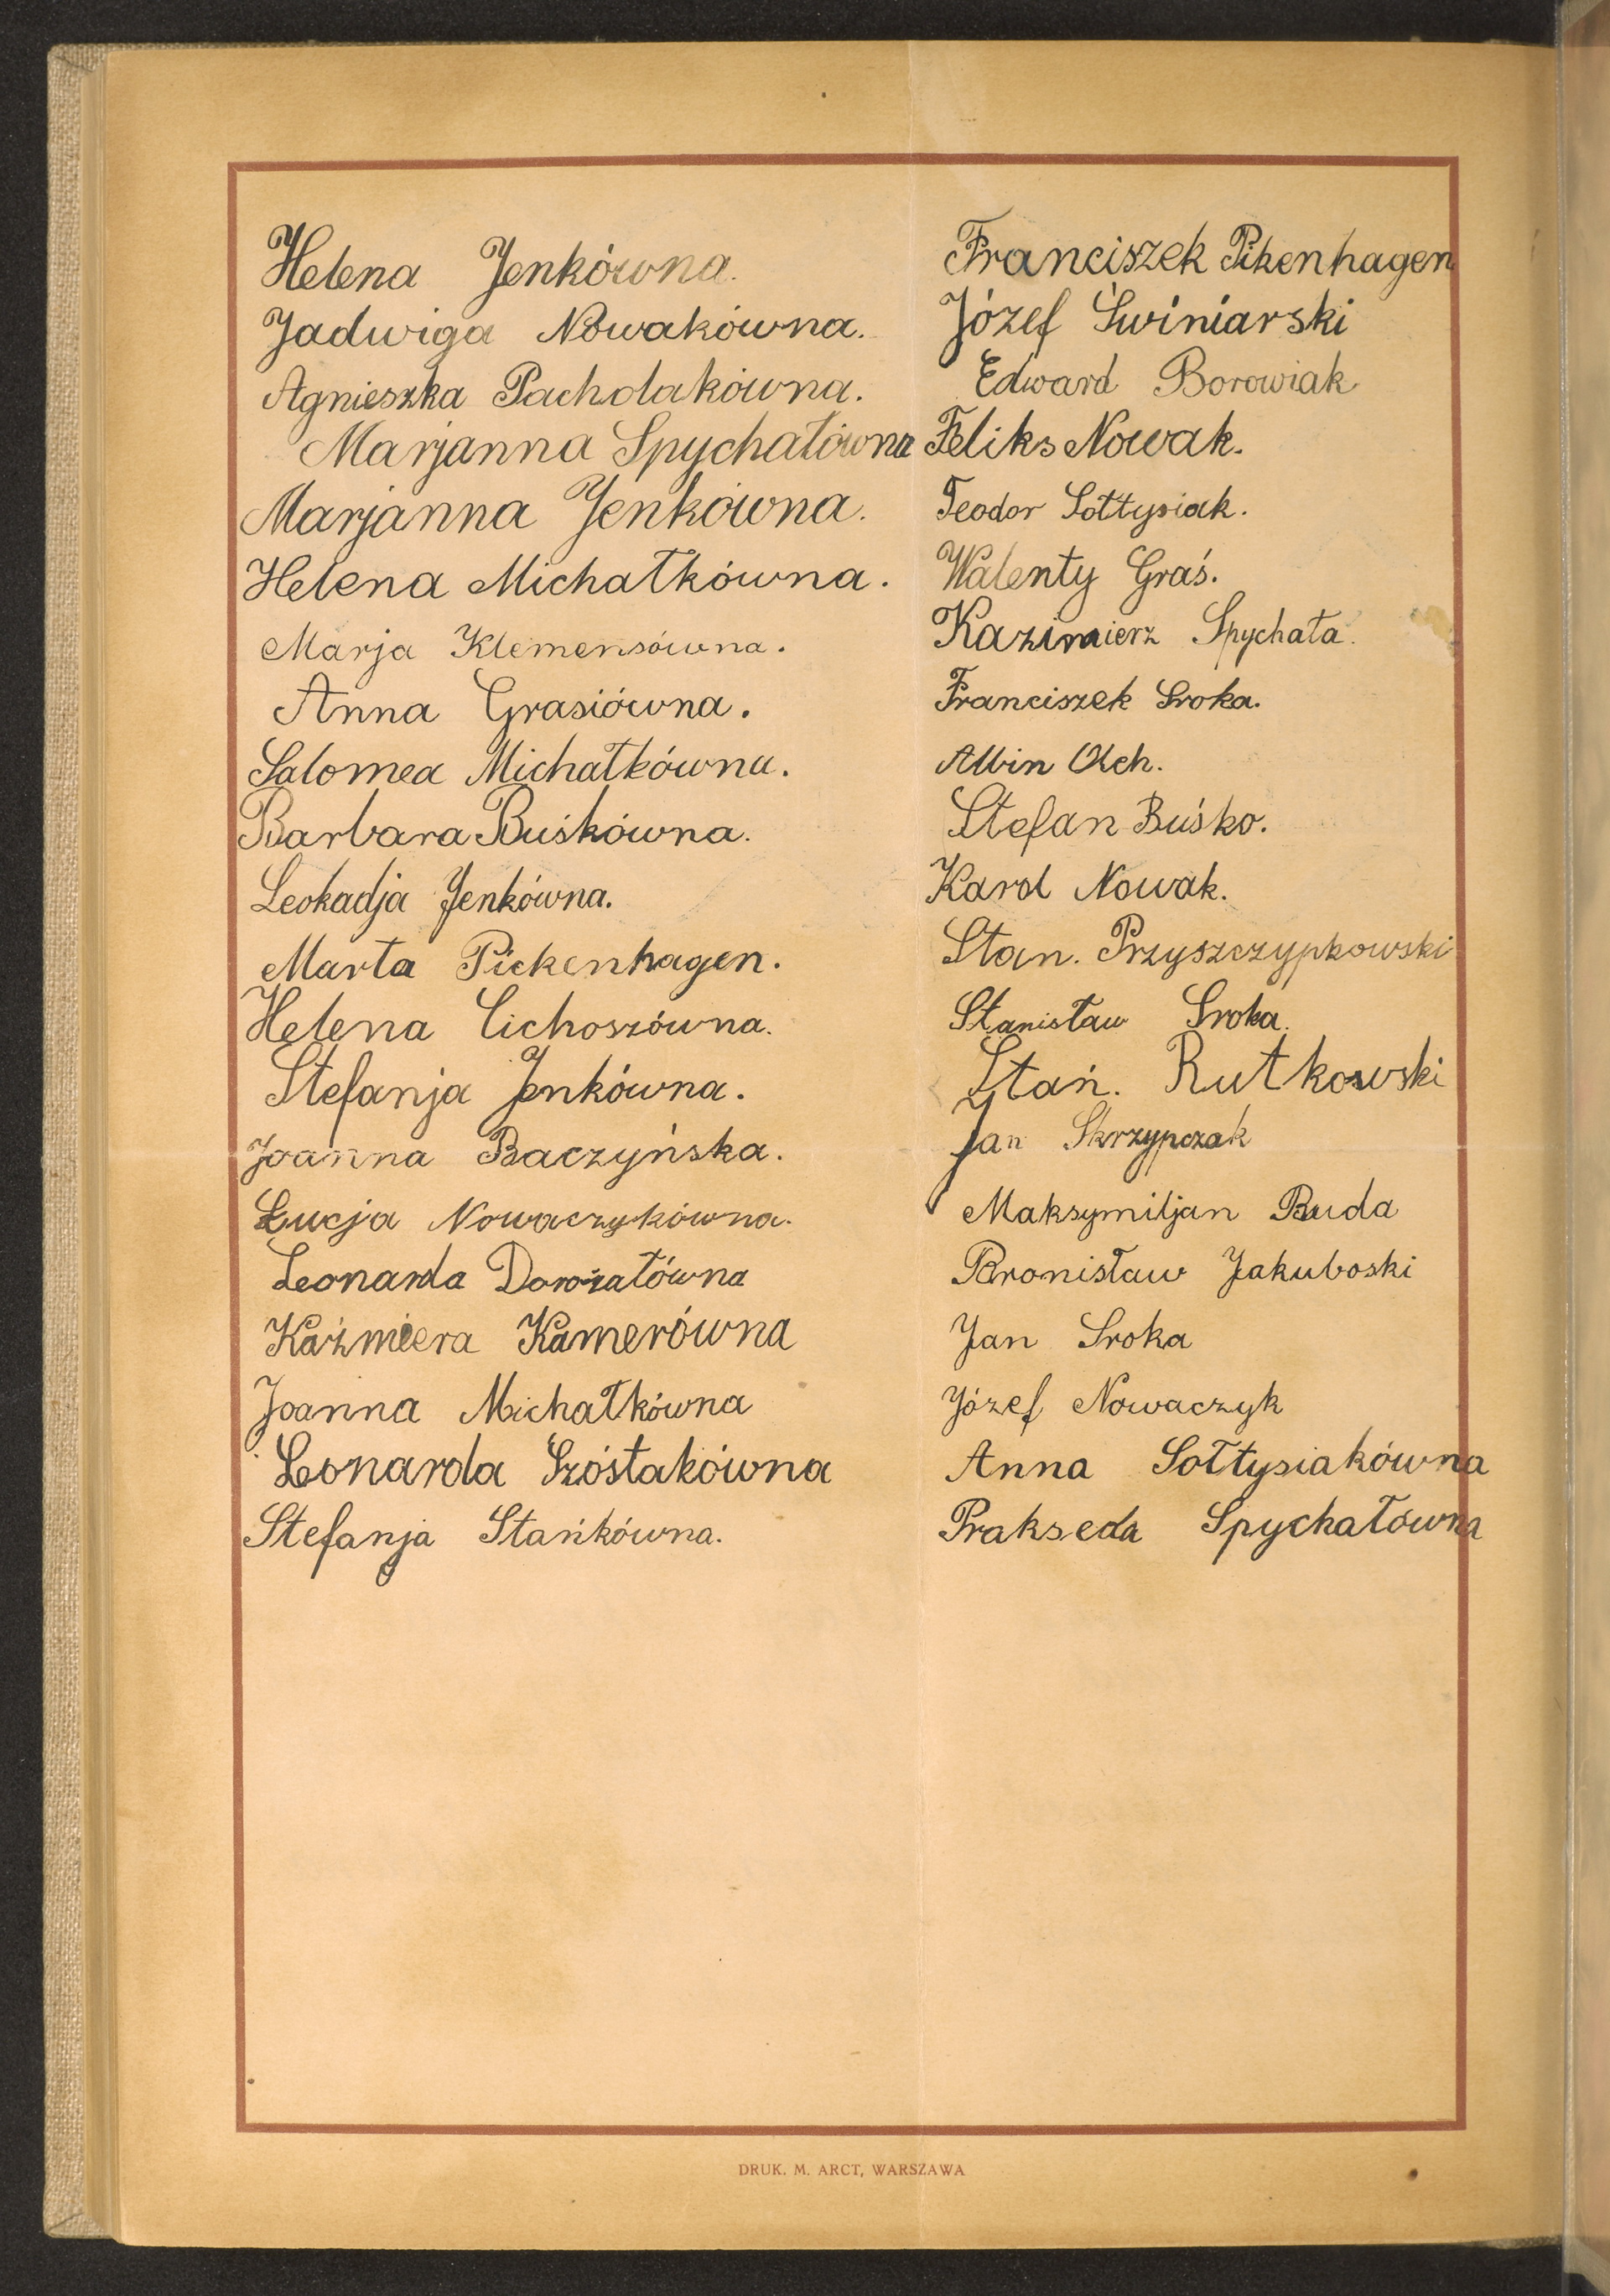 Helena Jenkówna.
Jadwiga Nowakówna.
Agnieszka Pacholakówna.
Marjanna Spychałówna
Marjanna Jenkówna.
Helena Michałkówna.
Marja Klemensówna.
Anna Grasiówna.
Salomea Michałkówna.
Barbara Buśkówna.
Leokadja Jenkówna.
Marta Pickenhagen.
Helena Cichoszówna.
Stefanja Jenkówna.
Joanna Baczyńska.
Łucja Nowaczykówna.
Leonarda Dorożałówna
Kaźmiera Kamerówna
Joanna Michałkówna
Leonarda Szóstakówna
Stefanja Stańkówna.
Franciszek Pikenhagen
Józef Świniarski
Edward Borowiak
Feliks Nowak.
Teodor Sołtysiak.
Walenty Graś.
Kazimierz Spychała.
Franciszek Sroka.
Albin Olch.
Stefan Buśko.
Karol Nowak.
Stan. Przyszczypkowski
Stanisław Sroka.
Stań. Rutkowski
Jan Skrzypczak
Maksymiljan Buda
Bronisław Jakuboski
Jan Sroka
Józef Nowaczyk
Anna Sołtysiakówna
Prakseda Spychałówna
DRUK. M. ARCT, WARSZAWA